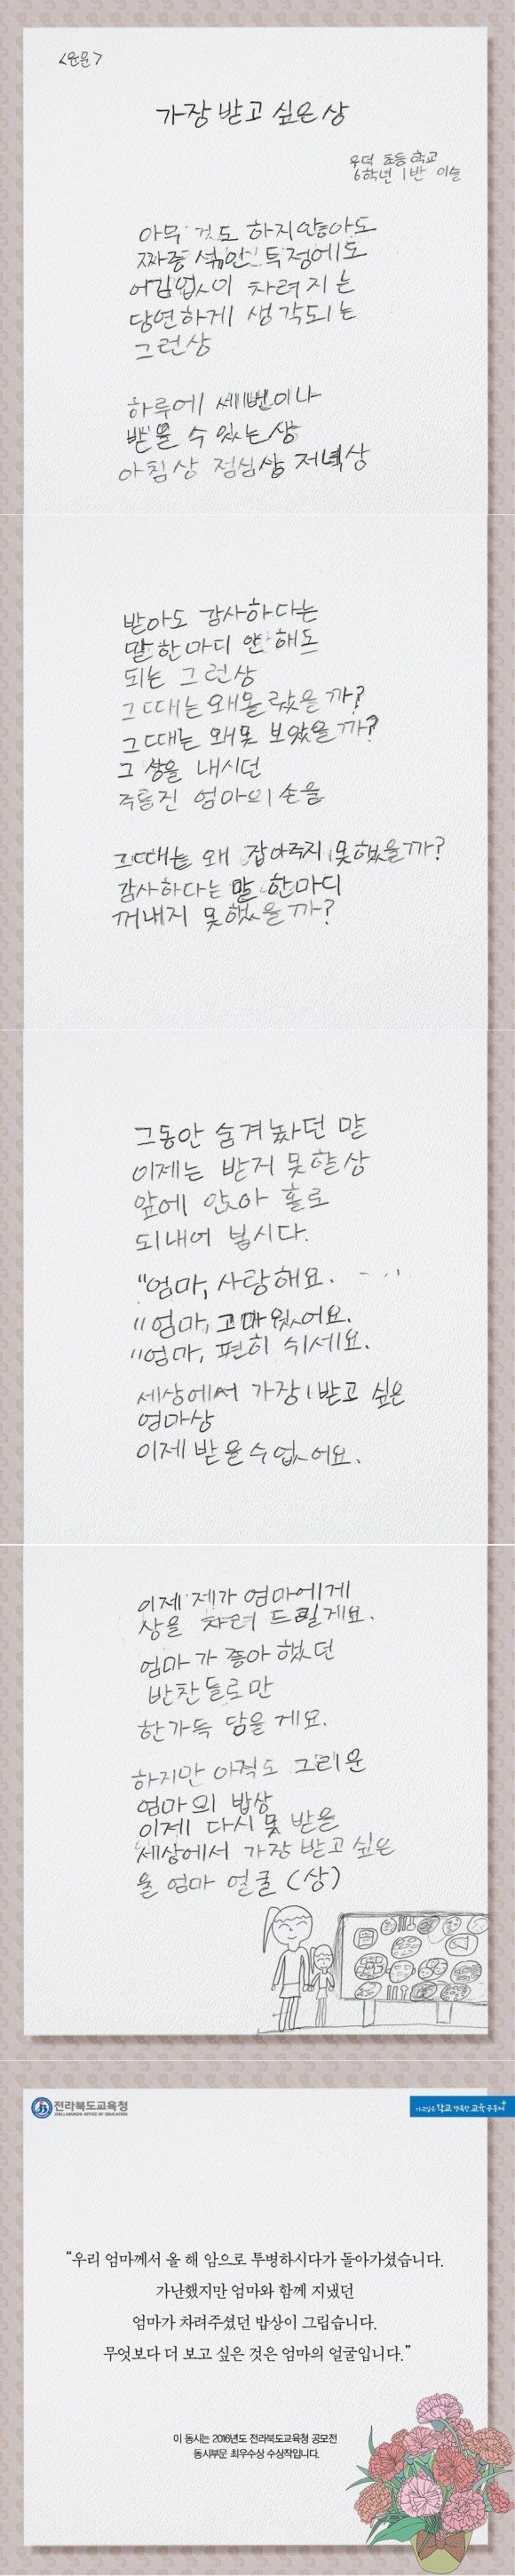 <운문>
가장 받고 싶은 상
우덕 초등학교
6학년 1반 이슬
아무 것도 하지않아도
짜증 섞인 투정에도
어김없이 차려지는
당연하게 생각되는
그런상
하루에 세번이나
받을 수 있는 상
아침상 점심상 저녁상
받아도 감사하다는
말 한마디 안 해도
되는 그런상
그때는 왜 몰랐을까?
그때는 왜 못 보았을까?
그 상을 내시던
주름진 엄마의 손을
그때는 왜 잡아주지 못했을까?
감사하다는 말 한마디
꺼내지 못했을까?
그동안 숨겨놨던 말
이제는 받지 못할상
앞에 앉아 홀로
되내어 봅시다.
"엄마, 사랑해요. ....
"엄마, 고마웠어요.
"엄마, 편히 쉬세요.
세상에서 가장 받고 싶은
엄마상
이제 받을수 없어요.
이제 제가 엄마에게
상을 차려 드릴게요.
엄마가 좋아했던
반찬들로만
한가득 담을게요.
하지만 아직도 그리운
엄마의 밥상
이제 다시 못 받을
세상에서 가장 받고 싶은
울 엄마 얼굴 (상)
전라북도교육청
JEOLLABUKDO OFFICE OF EDUCATION
가고싶은 학교 행복한 교육공동체
“우리 엄마께서 올 해 암으로 투병하시다가 돌아가셨습니다.
가난했지만 엄마와 함께 지냈던
엄마가 차려주셨던 밥상이 그립습니다.
무엇보다 더 보고 싶은 것은 엄마의 얼굴입니다.”
이 동시는 2016년도 전라북도교육청 공모전
동시부문 최우수상 수상작입니다.